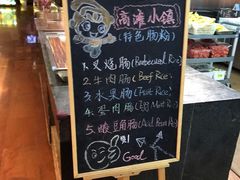 高滩小镇
(特色肠粉)
1.叉烧肠(Barbecued Rice)
2.牛肉肠(Beef Rice)
3.水果肠(Fruit Rice)
4.蛋肉肠(Egg Meat Rice)
5.酸豆角肠(Acid Bean Rice)
Good